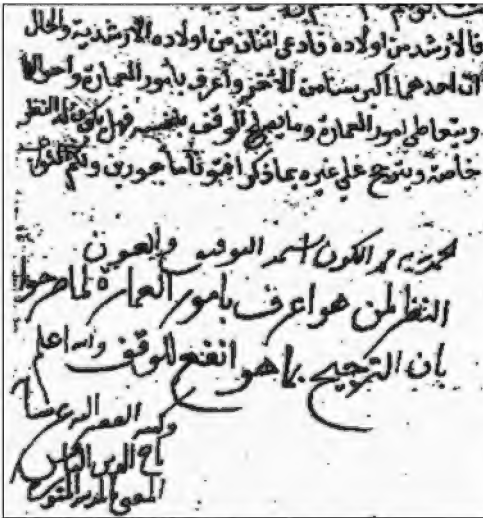 فالارشد من اولاده فادعى اثنان من اولاده الارشدية والحال
ان احدهما اكبر سنا من الاخر واعرف بامور العمارة واحوالها
ويتعاطى امور العمارة ومصالح الوقف بنفسه فهل يكون له النظر
خاصة ويترجح على غيره بما ذكر افتونا مأجورين ولكم الثواب
الحمد لله ممد الكون استمد التوفيق والعون
النظر لمن هو اعرف بامور العمارة لما صرحوا
بان الترجيح بما هو انفع للوقف والله اعلم
وكتبه الفقير اليه عز شانه
تاج الدين الياس
المفتي بالمدينة المنورة